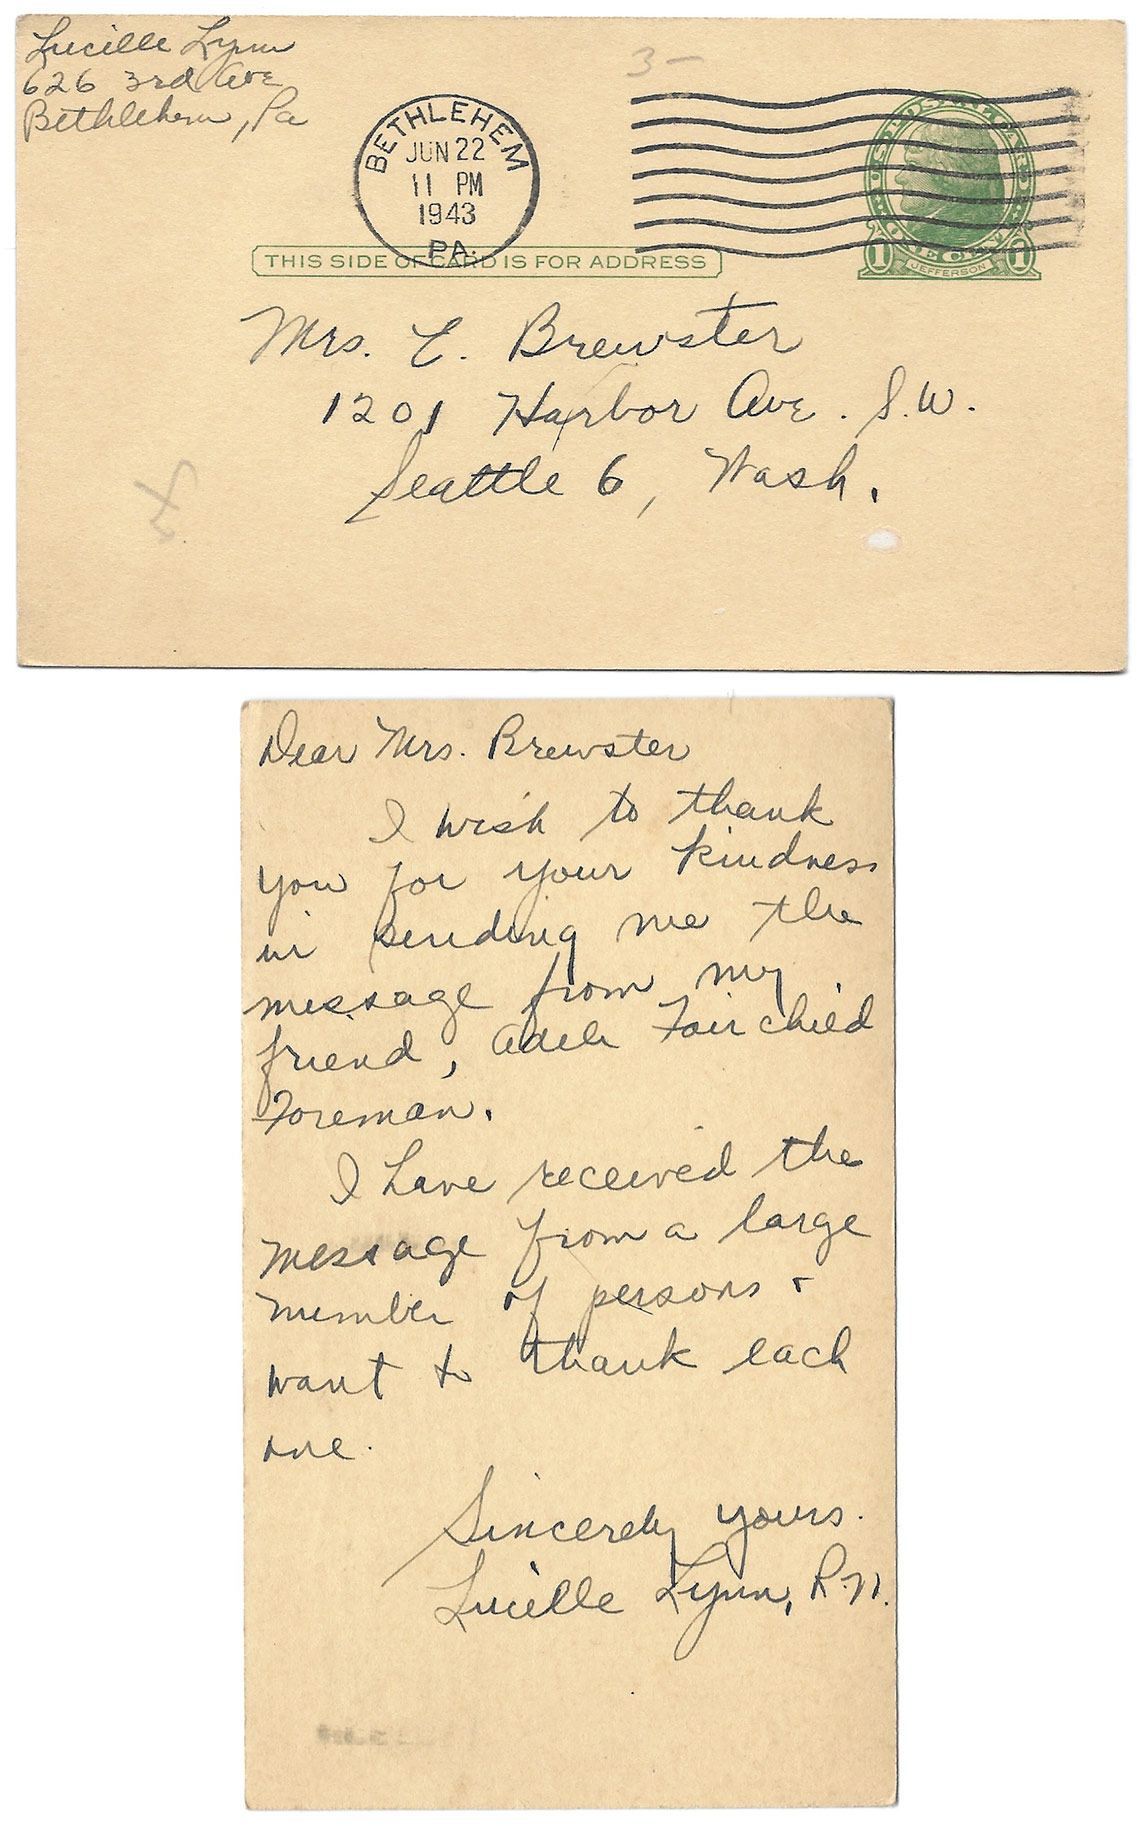 Lucille Lynn
626 3rd Ave
Bethlehem, Pa
3-
BETHLEHEM
JUN 22
11 PM
1943
PA.
THIS SIDE OF CARD IS FOR ADDRESS
1 1
JEFFERSON
Mrs. C. Brewster
1201 Harbor Ave. S.W.
Seattle 6, Wash.
Dear Mrs. Brewster
I wish to thank
you for your kindness
in sending me the
message from my
friend, Adele Fairchild
Foreman.
I have received the
message from a large
number of persons &
want to thank each
one.
Sincerely yours.
Lucille Lynn, R.N.